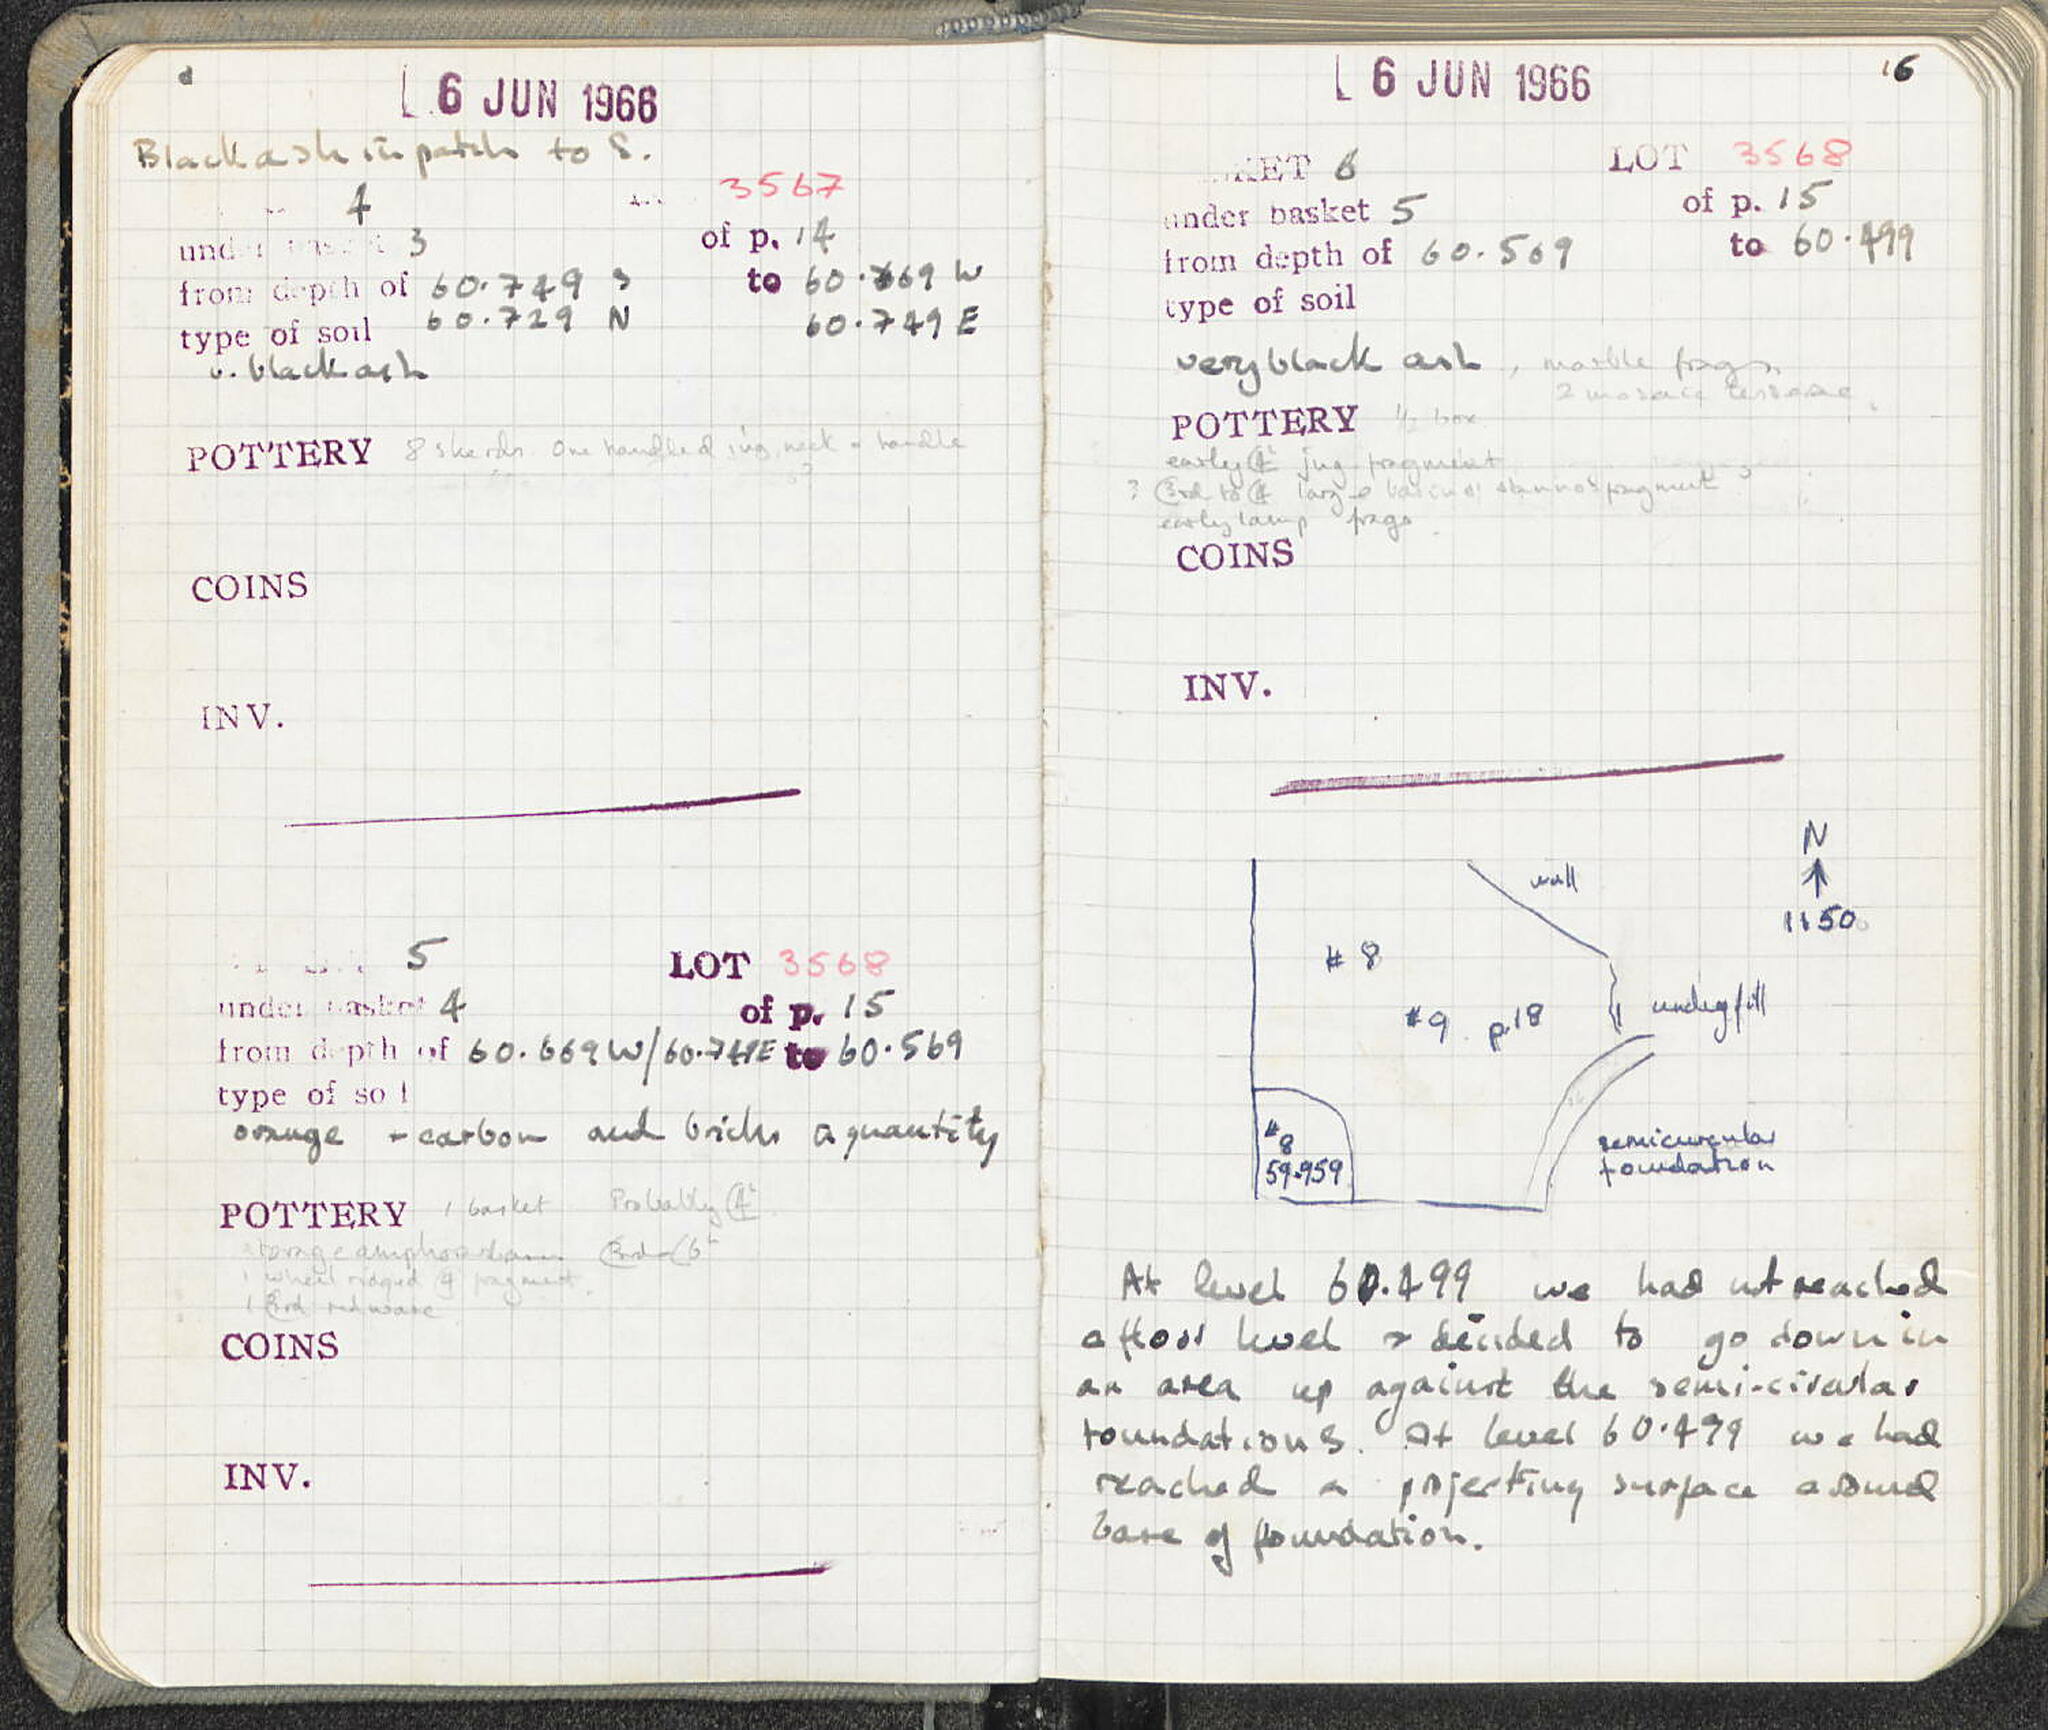 6 JUN 1966
Black ash in patch to S.
4 3567
under basket 3 of p. 14
from depth of 60.749 S to 60.669 W
type of soil 60.729 N 60.749 E
v. black ash
POTTERY 8 sherds One handled jug, neck + handle
COINS
INV.
5 LOT 3568
under basket 4 of p. 15
from depth of 60.669 W/60.749E to 60.569
type of soil
orange + carbon and bricks a quantity
POTTERY 1 basket Probably C4
storage amphora
1 wheel ridged fragment.
1 C3rd red ware
COINS
INV.
6 JUN 1966
16
KET 6 LOT 3568
under basket 5 of p. 15
from depth of 60.569 to 60.499
type of soil
very black ash, marble frags.
2 mosaic tesserae.
POTTERY 1/2 box
early C4 jug fragment
? C3rd to C4 large basin or stamnos fragment
early lamp frags.
COINS
INV.
N
wall
1:50
# 8
#9 p.18
undug fill
#8
59.959
semicircular
foundation
At level 60.499 we had not reached
a floor level & decided to go down in
an area up against the semi-circular
foundations. At level 60.499 we had
reached a projecting surface around
base of foundation.